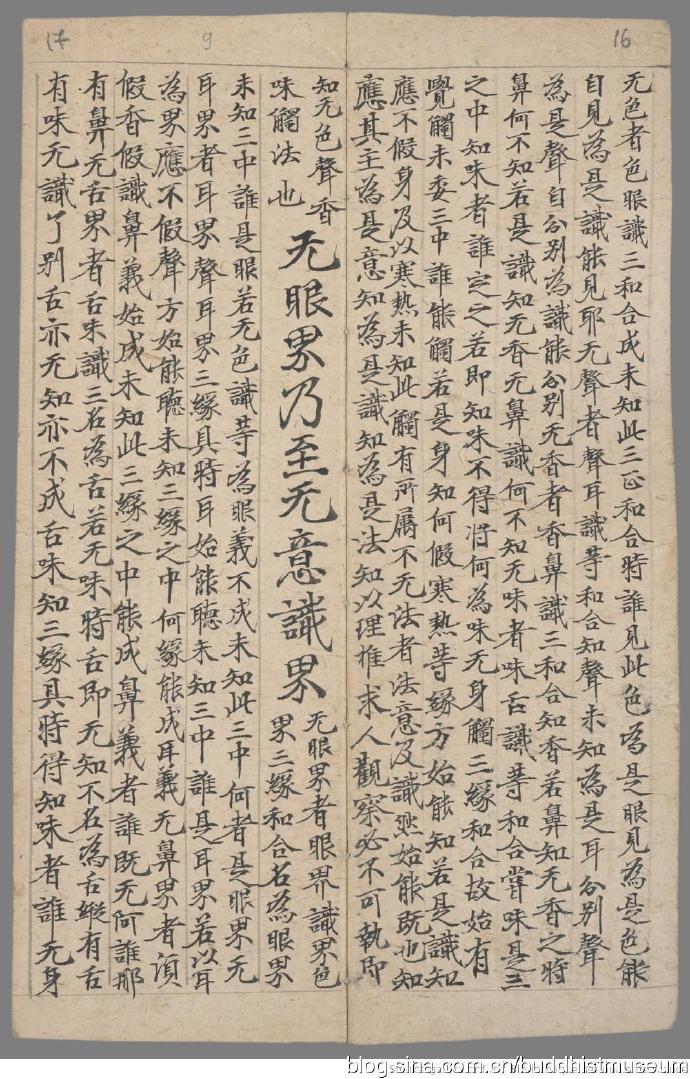 16
无色者色眼識三和合成未知此三正和合時誰見此色為是眼見為是色能
自見為是識能見耶无聲者聲耳識等和合知聲未知為是耳分別聲
為是聲自分別為識能分別无香者香鼻識三和合知香若鼻知无香之時
鼻何不知若是識知无香无鼻識何不知无味者味舌識等和合嘗味是三
之中知味者誰定之若即知味不得将何為味无身觸三緣和合故始有
覺觸未委三中誰能觸若是身知何假寒熱等緣方始能知若是識知
應不假身及以寒熱未知此觸有所属不无法者法意及識然始能既也知
應其主為是意知為是識知為是法知以理推求人觀察必不可執即
9
知无色聲香
味觸法也
无眼界乃至无意識界
无眼界者眼界識界色
界三緣和合名為眼界
未知三中誰是眼若无色識等為眼義不成未知此三中何者是眼界无
耳界者耳界聲耳界三緣具時耳始能聴未知三中誰是耳界若以耳
為界應不假聲方始能聴未知三緣之中何緣能成耳義无鼻界者湏
假香假識鼻義始成未知此三緣之中能成鼻義者誰既无阿誰那
有鼻无舌界者舌味識三名為舌若无味時舌即无知不名為舌縱有舌
有味无識了别舌亦无知亦不成舌味知三緣具時得知味者誰无身
17
blog.sina.com.cn/buddhistmuseum